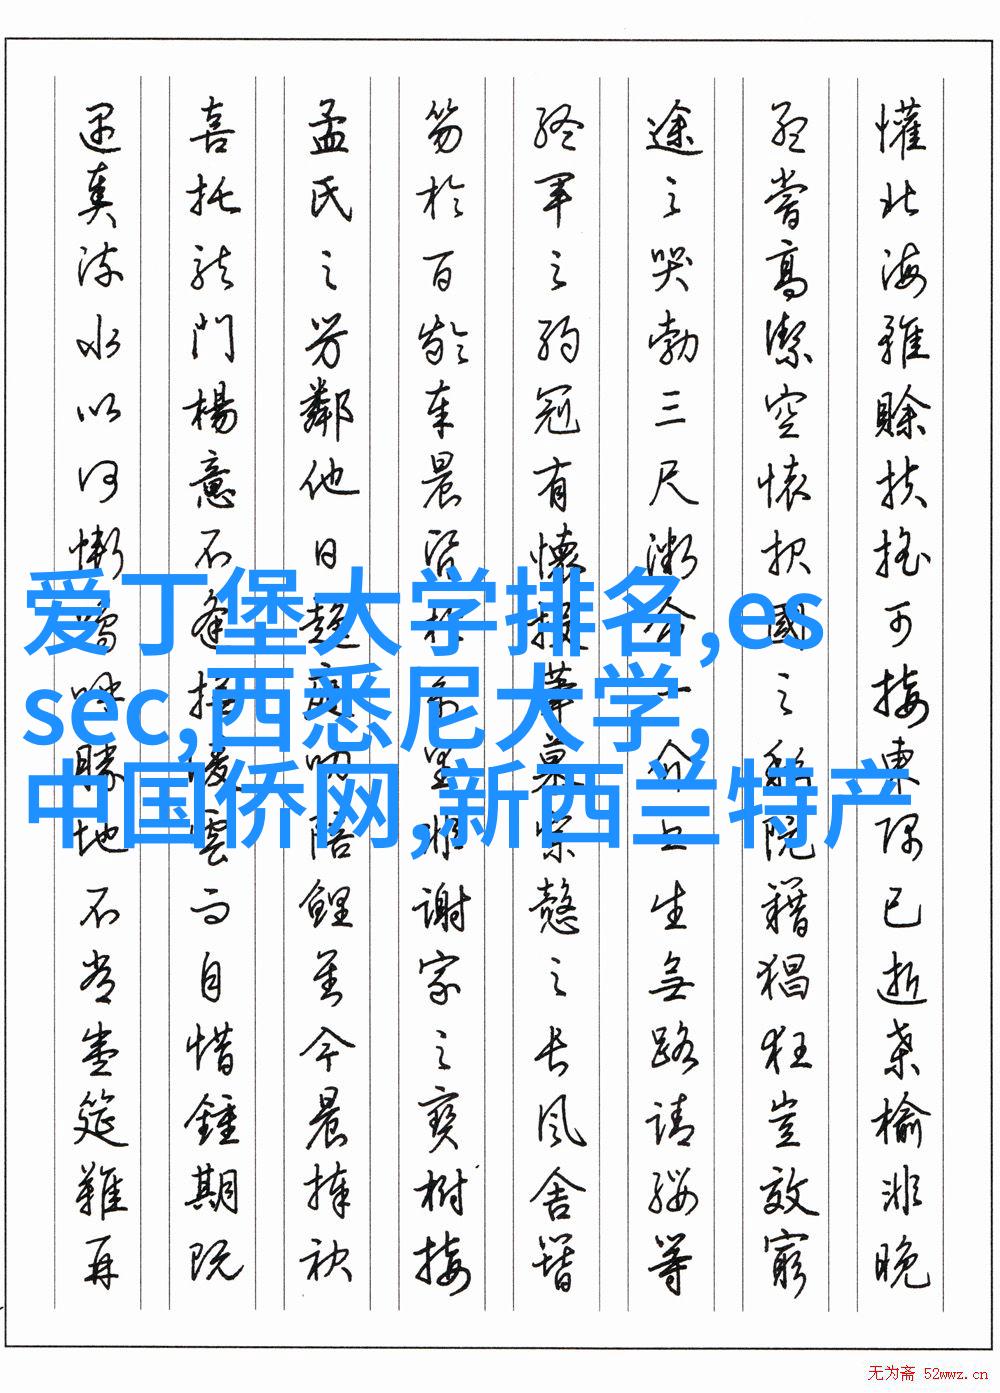 懽北海雖賒扶搖可接東隅已逝桑榆非晚
孟嘗高潔空懷报國之院籍猖狂豈效窮
途之哭勃三尺微命一介书生無路請纓等
終軍之弱冠有懷投筆慕宗愨之長風舍簪
笏於百齡奉晨昏於万里非謝家之寶樹接
孟氏之芳鄰他日趨庭叨陪鯉對今晨捧袂
喜托龍門楊意不逢撫凌雲而自惜鍾期既
遇奏流水以何慚嗚呼勝地不常盛筵難再
爱丁堡大学排名,es
sec,西悉尼大学,
中国侨网,新西兰特产
无为斋 52wwz.cn